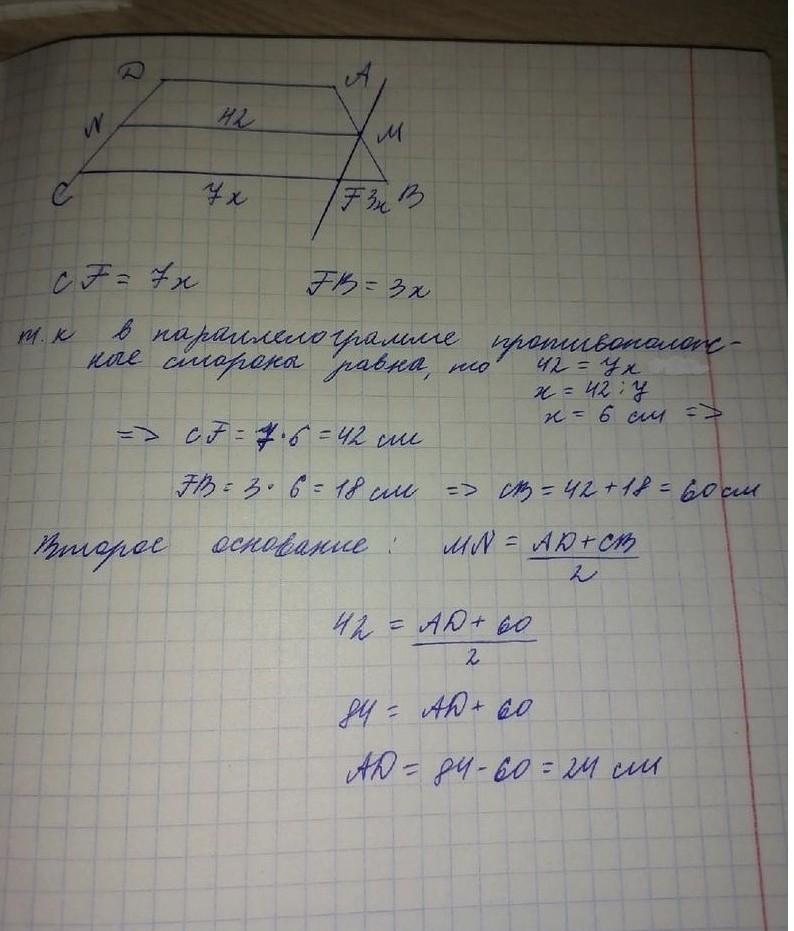 D A
N 42 M
C 7x F 3x B
CF = 7x FB = 3x
т.к в параллелограмме противополож-
ные стороны равна, то 42 = 7x
x = 42 : 7
x = 6 см =>
=> CF = 7·6 = 42 см
FB = 3·6 = 18 см => CB = 42 + 18 = 60 см
Второе основание: MN = AD + CB / 2
42 = AD + 60 / 2
84 = AD + 60
AD = 84 - 60 = 24 см